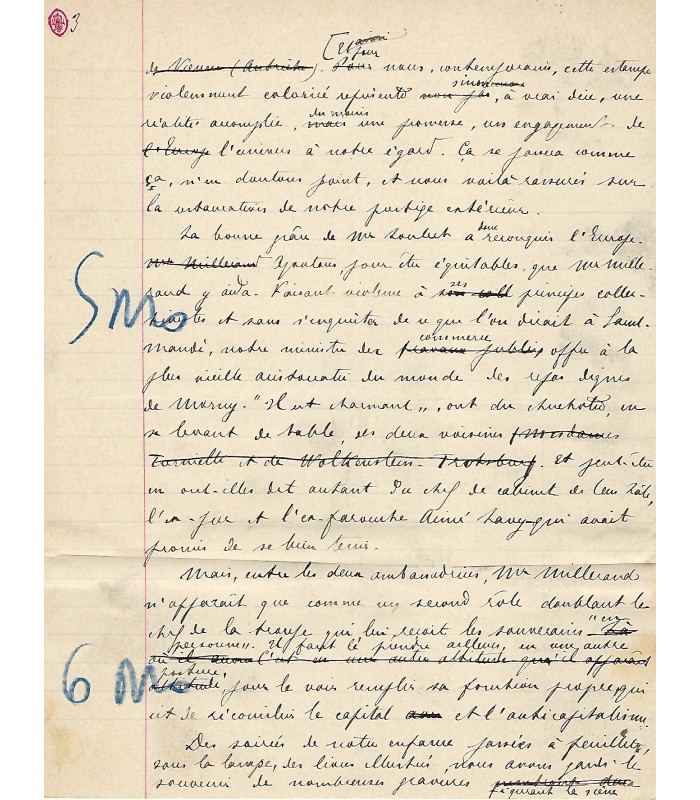 3
de Vienne (Autriche). Pour nous, contemporains, cette estampe
violemment coloriée représente non pas, à vrai dire, une sinon
réalité accomplie, mais du moins une promesse, un engagement de
l'Europe l'univers à notre égard. Ça se passera comme
ça, n'en doutons point, et nous voilà rassurés sur
la restauration de notre prestige extérieur.
La bonne grâce de Mr Loubet a donc reconquis l'Europe.
Mr Millerand Ajoutons pour être équitables, que Mr Mille-
rand y aida. Faisant violence à ses principes collec-
tivistes et sans s'inquiéter de ce que l'on dirait à Saint-
Mandé, notre ministre du commerce travaux publics offre à la
plus vieille aristocratie du monde des repas dignes
de Morny. "Il est charmant", ont dû chuchoter, en
se levant de table, ses deux voisines (Mesdames
Tornielli et de Wolkenstein-Trotsburg. Et peut-être
en ont-elles dit autant du chef de cabinet de leur hôte,
l'ex-pur et l'ex-farouche Aimé Lavy qui avait
promis de se bien tenir.
Mais, entre les deux ambassadrices, Mr Millerand
n'apparaît que comme un second rôle doublant le
chef de la troupe qui lui, reçoit les souverains "en
personne". Il faut le prendre ailleurs, en une autre
où il C'est en une autre attitude qu'il apparaît
posture,
attitude pour le voir remplir sa fonction propre qui
est de réconcilier le capital et l'anticapitalisme.
Des soirées de notre enfance passées à feuilleter,
sous la lampe, des livres illustrés, nous avons gardé le
souvenir de nombreuses gravures
figurant la scène
5
6